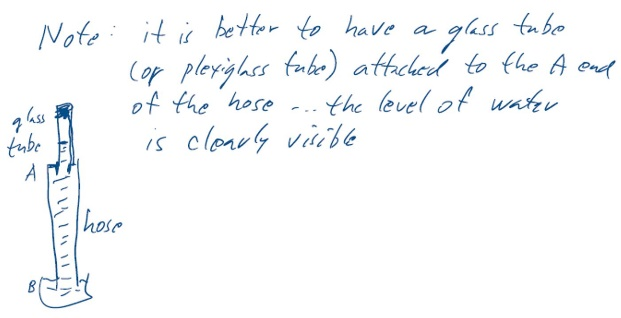 Note: it is better to have a glass tube
(or plexiglass tube) attached to the A end
of the hose ... the level of water
is clearly visible
glass
tube
A
hose
B